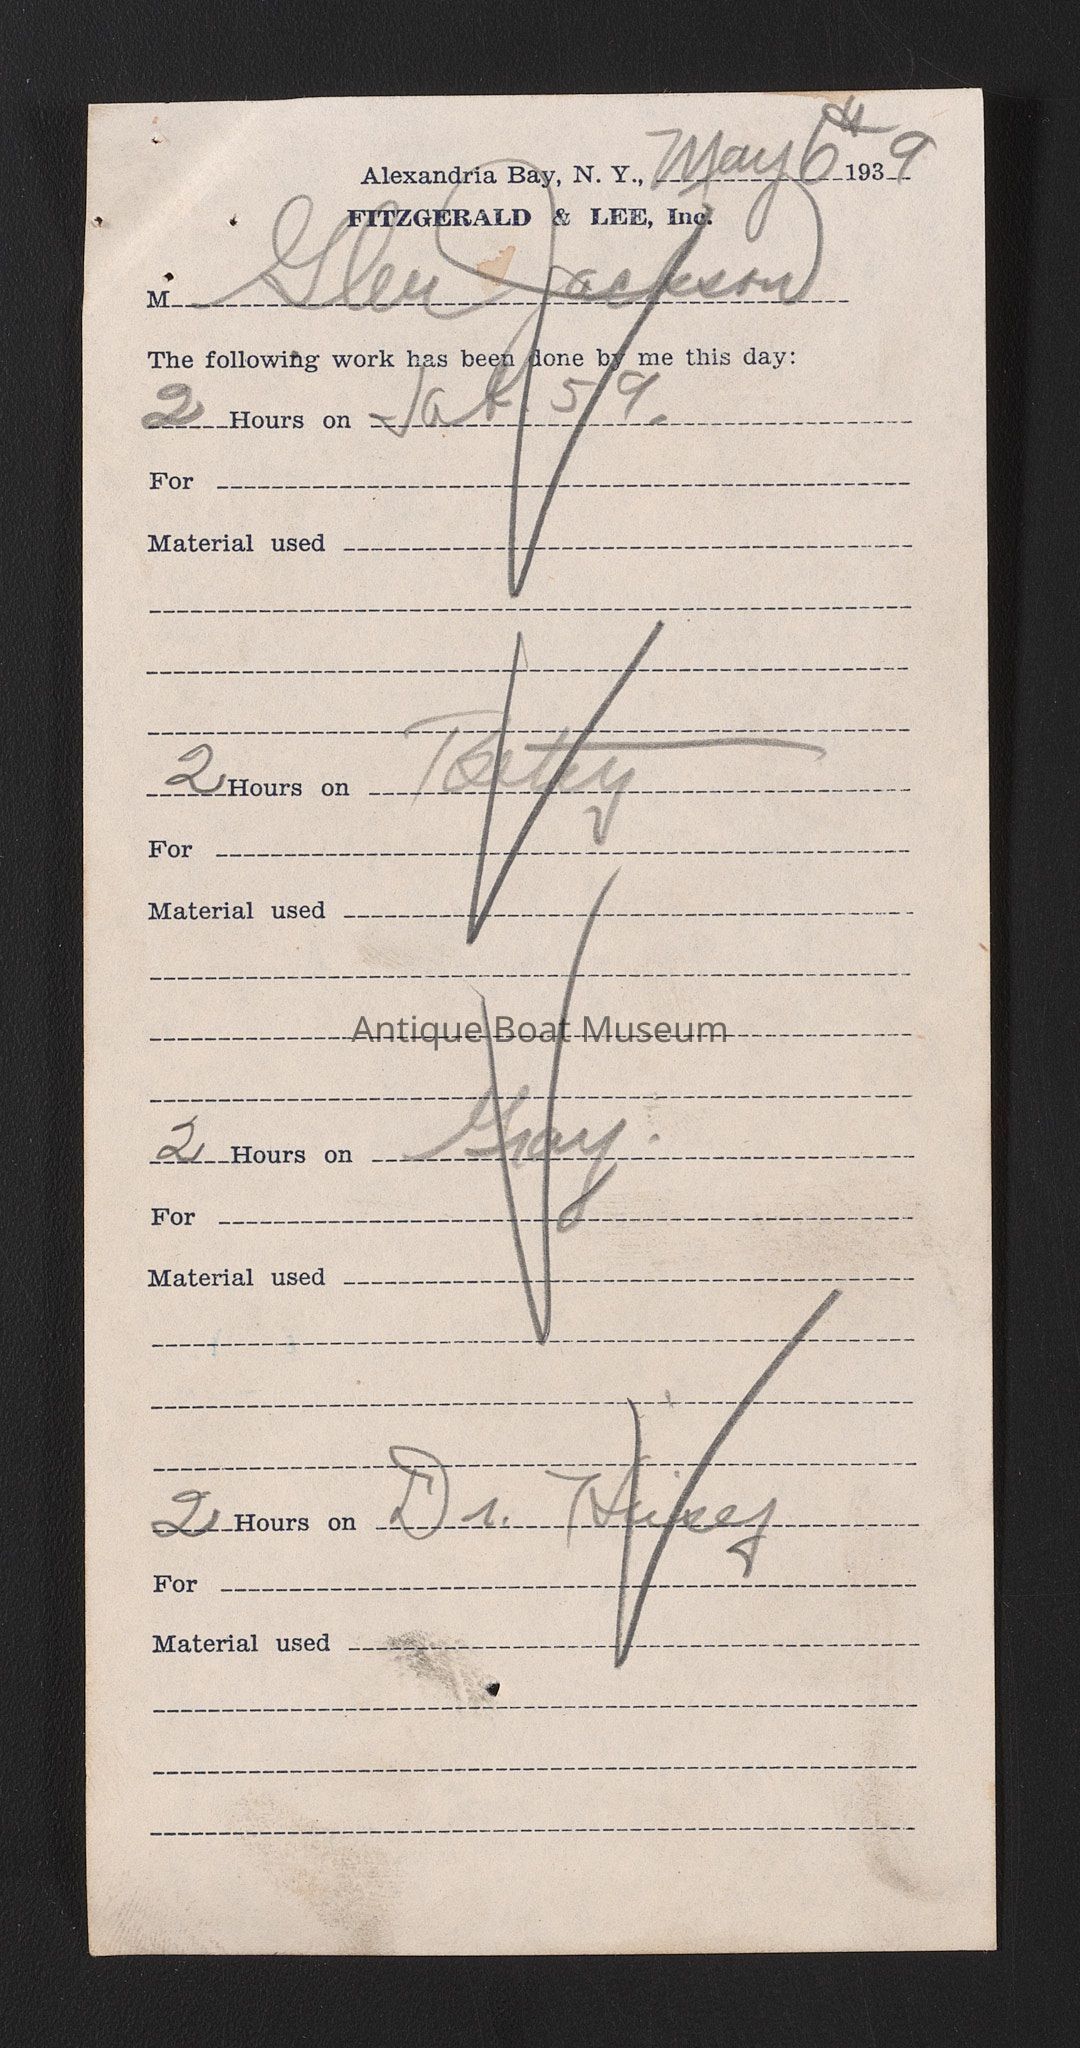 Alexandria Bay, N. Y., May 6th 1939
FITZGERALD & LEE, Inc.
M Glen Jackson
The following work has been done by me this day:
2 Hours on 59.
For
Material used
2 Hours on
For
Material used
Antique Boat Museum
2 Hours on Gray.
For
Material used
2 Hours on Dr.
For
Material used